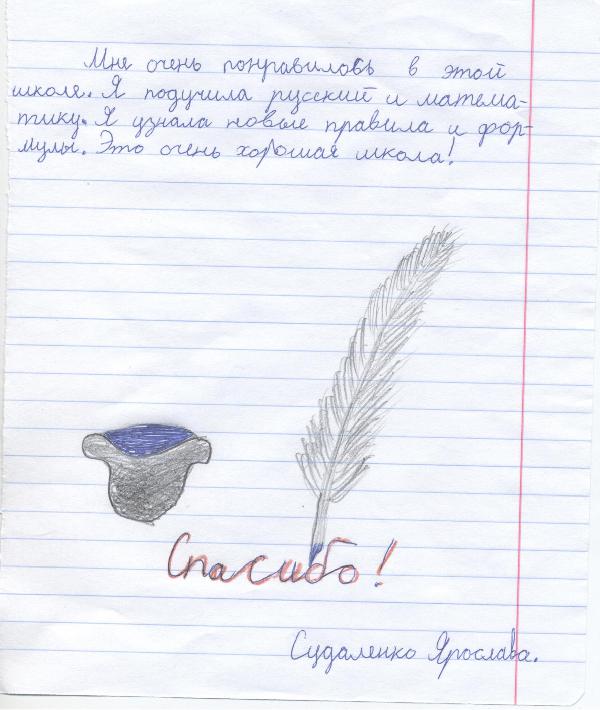 Мне очень понравилось в этой
школе. Я подучила русский и матема-
тику. Я узнала новые правила и фор-
мулы. Это очень хорошая школа!
Спасибо!
Судаленко Ярослава.